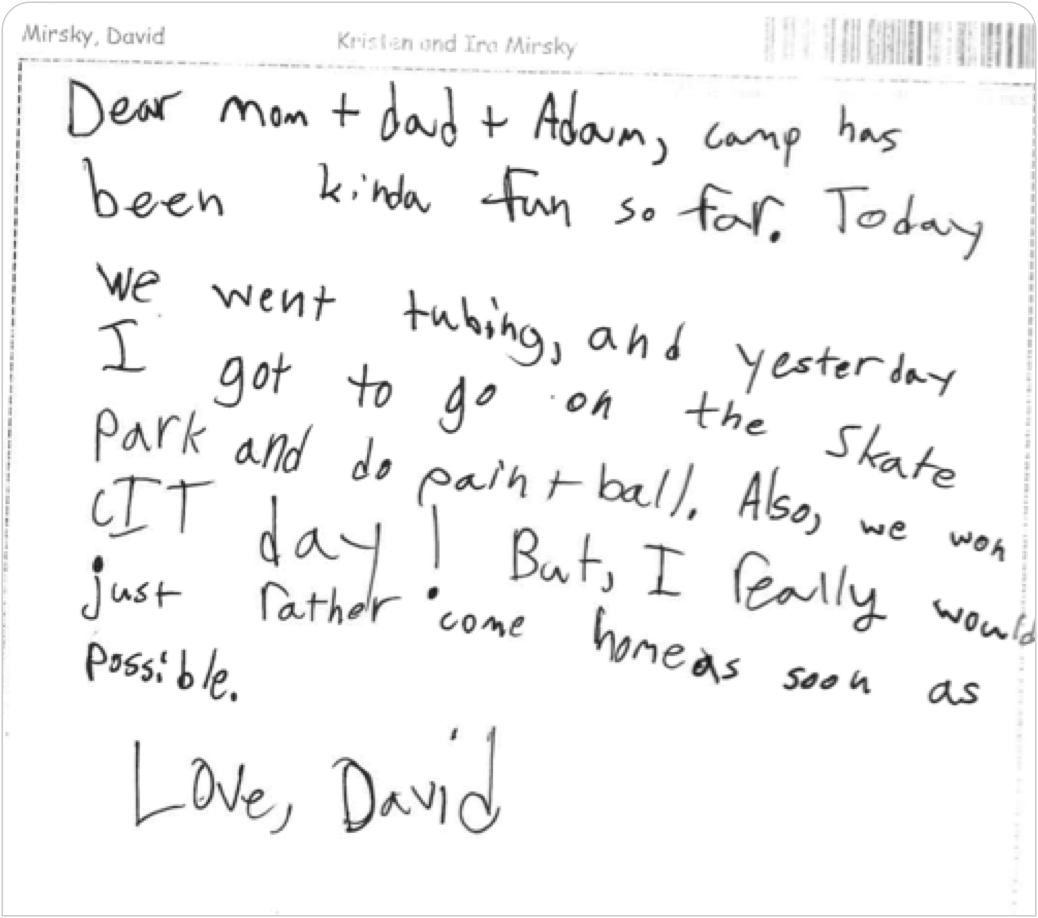 Mirsky, David
Kristen and Ira Mirsky
Dear mom + dad + Adam, camp has
been kinda fun so far. Today
we went tubing, and yesterday
I got to go on the skate
park and do paint ball. Also, we won
CIT day! But, I really would
just rather come home as soon as
possible.
Love, David